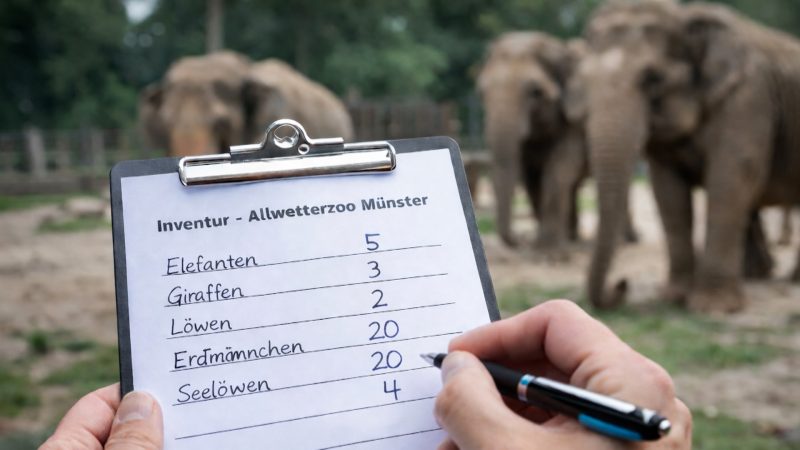 Inventur - Allwetterzoo Münster
Elefanten 5
Giraffen 3
Löwen 2
Erdmännchen 20
Seelöwen 20
4